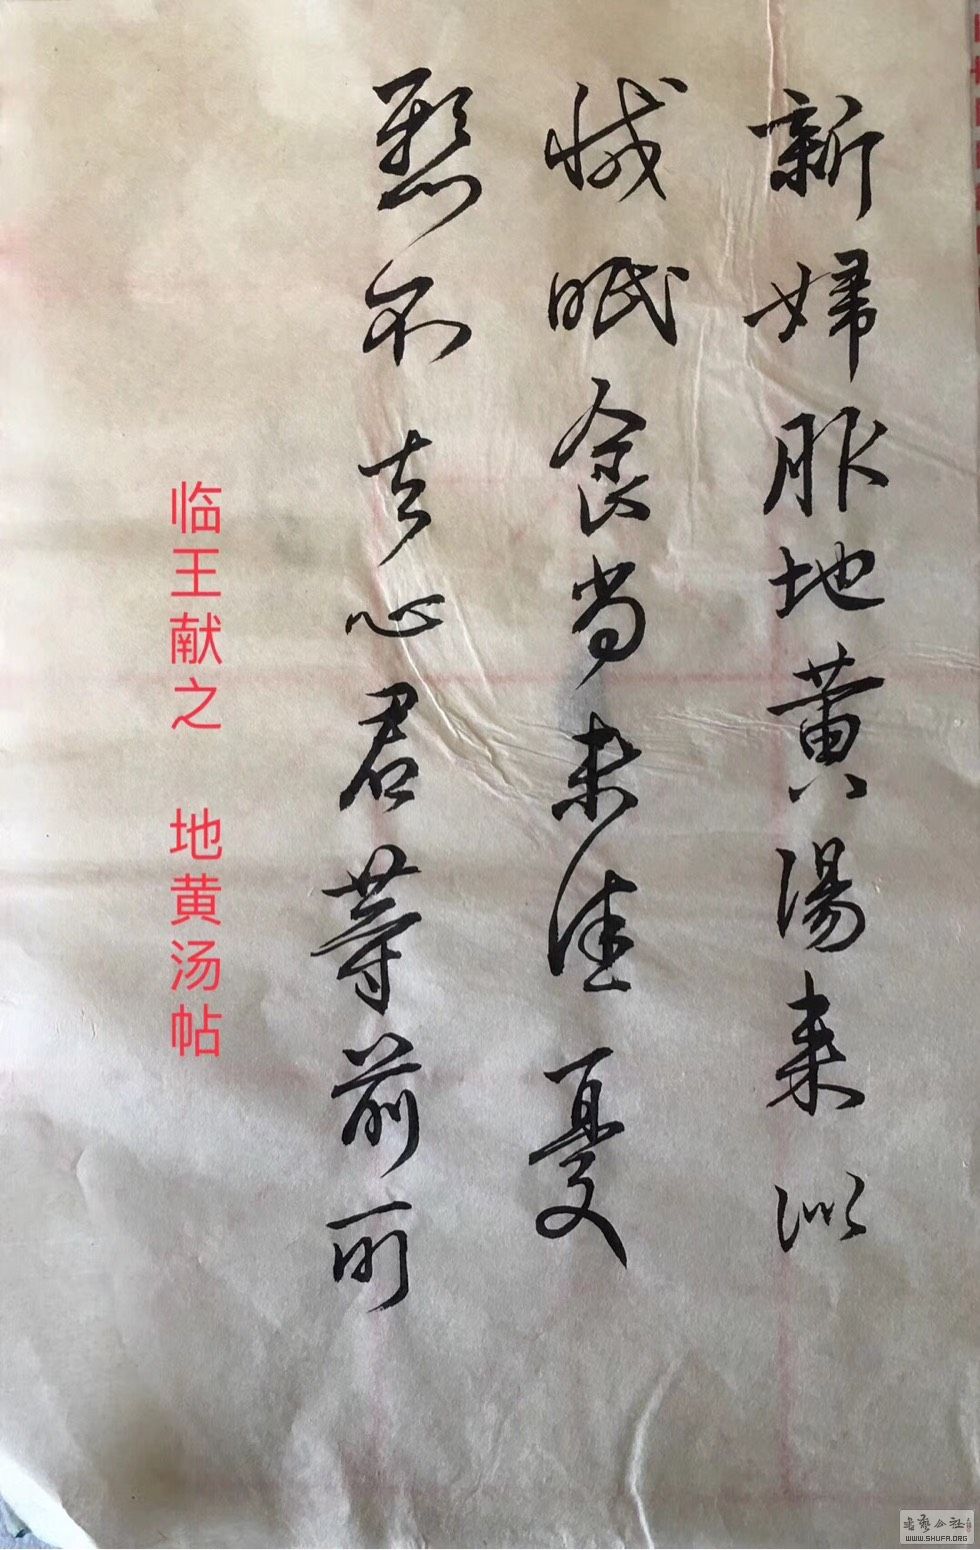 新婦服地黄湯来似
減眠食尚未佳憂
懸不去心君等前所
临王献之 地黄汤帖
書藝公社
WWW.SHUFA.ORG